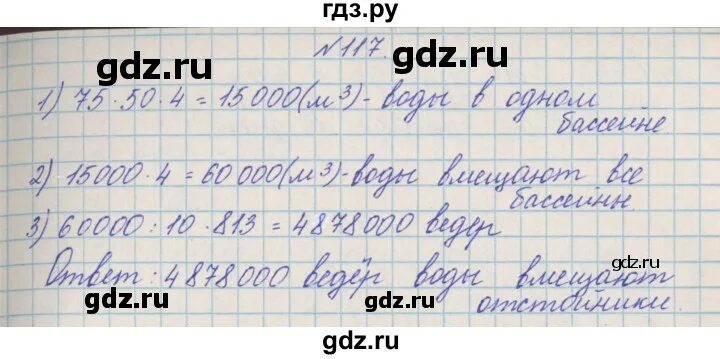 гдз.ру
№117.
gdz.ru
1) 75·50·4=15000(м³)-воды в одном
бассейне
gdz.ru gdz.ru
2) 15000·4=60000(м³)-воды вмещают все
бассейны
3) 60000:10·813=4878000 ведер
gdz.ru
Ответ: 4878000 ведёр воды вмещают
отстойники.
gdz.ru gdz.ru
gdz.ru